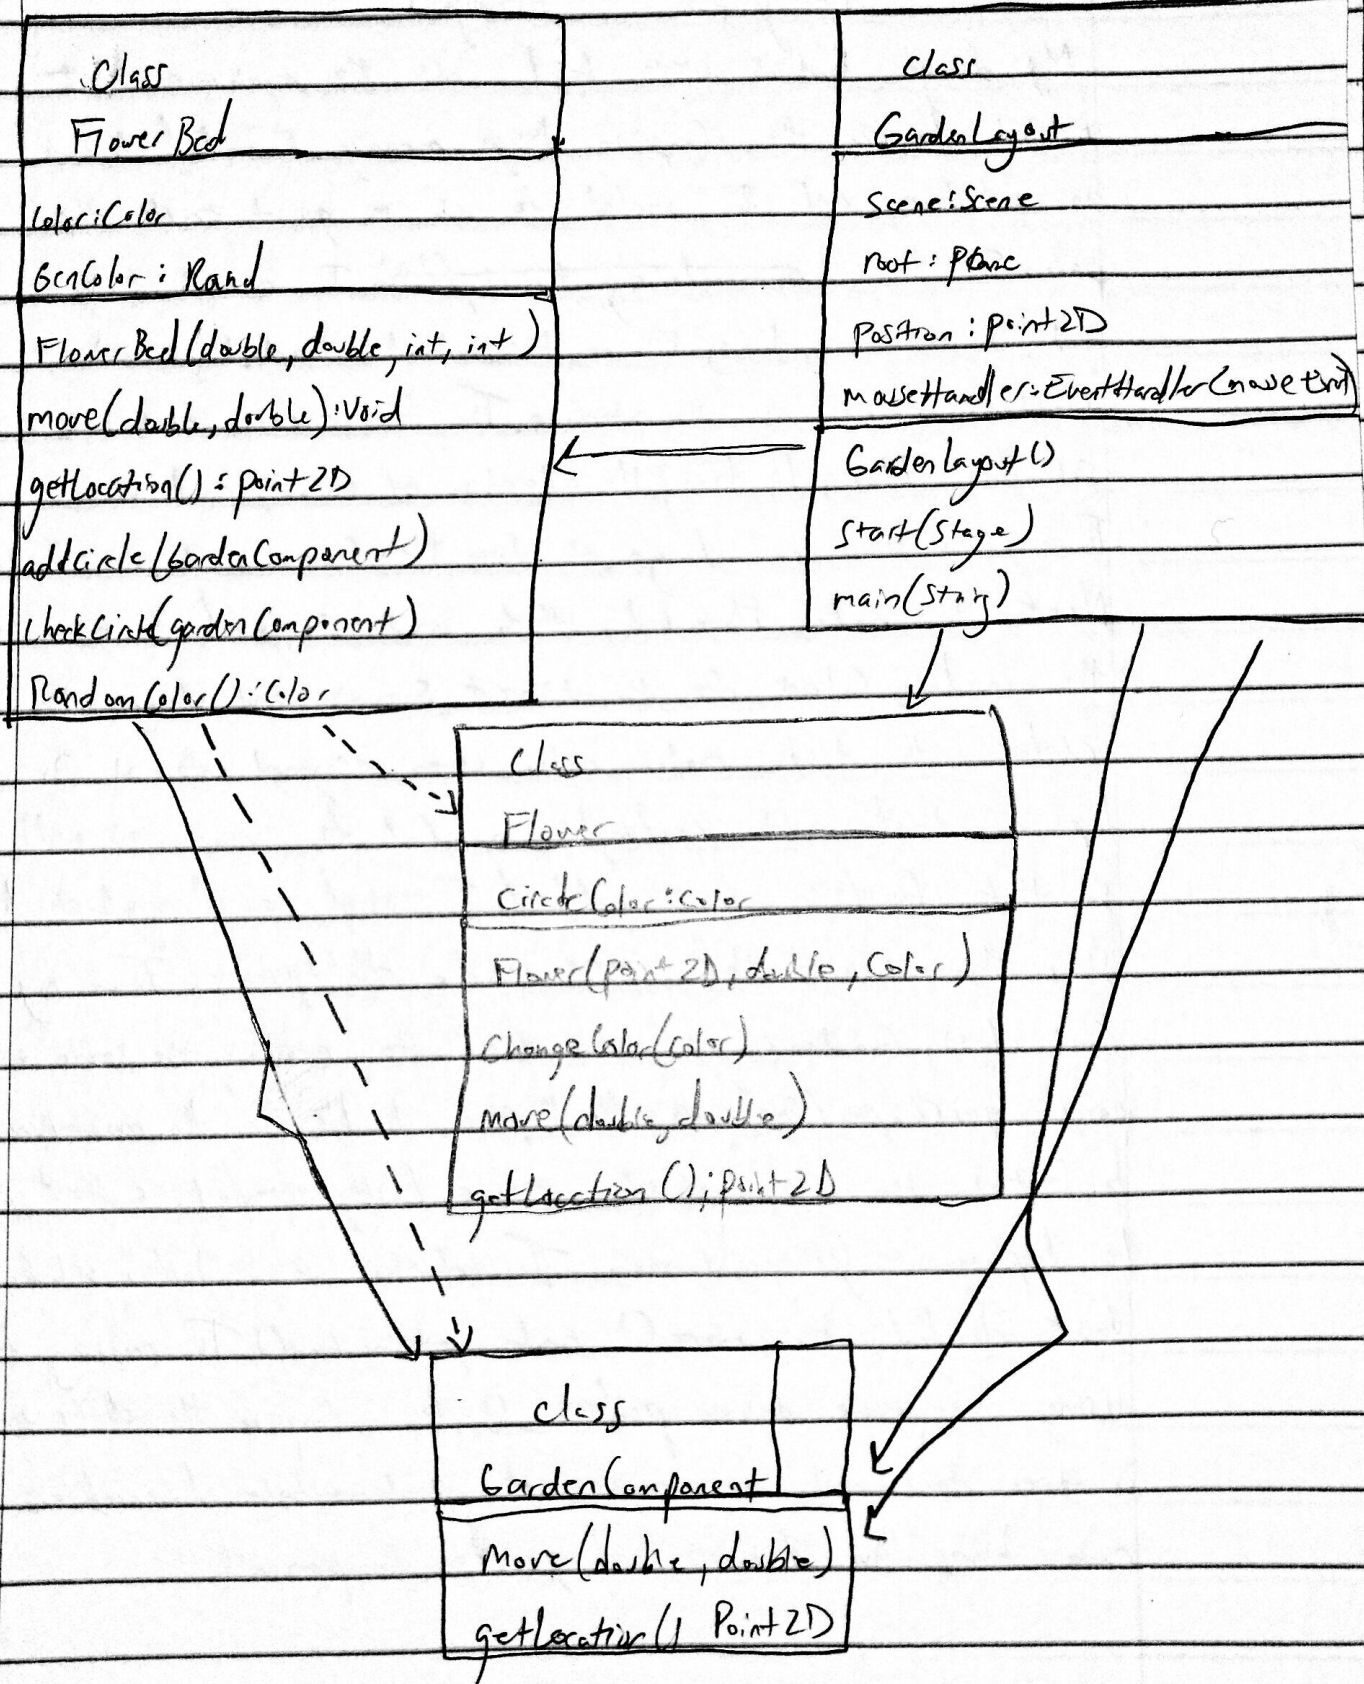 Class
FlowerBed
Color:Color
GenColor: Rand
FlowerBed(double, double, int, int)
move(double, double):Void
getLocation(): point2D
addCircle(GardenComponent)
CheckCircle(gardenComponent)
RandomColor():Color
Class
GardenLayout
Scene:Scene
root: pane
Position: point2D
mouseHandler:EventHandler(mouseEvent)
GardenLayout()
Start(Stage)
main(String)
Class
Flower
CircleColor:Color
Flower(point2D, double, Color)
ChangeColor(color)
move(double, double)
getLocation();point2D
class
GardenComponent
Move(double, double)
getLocation() Point2D